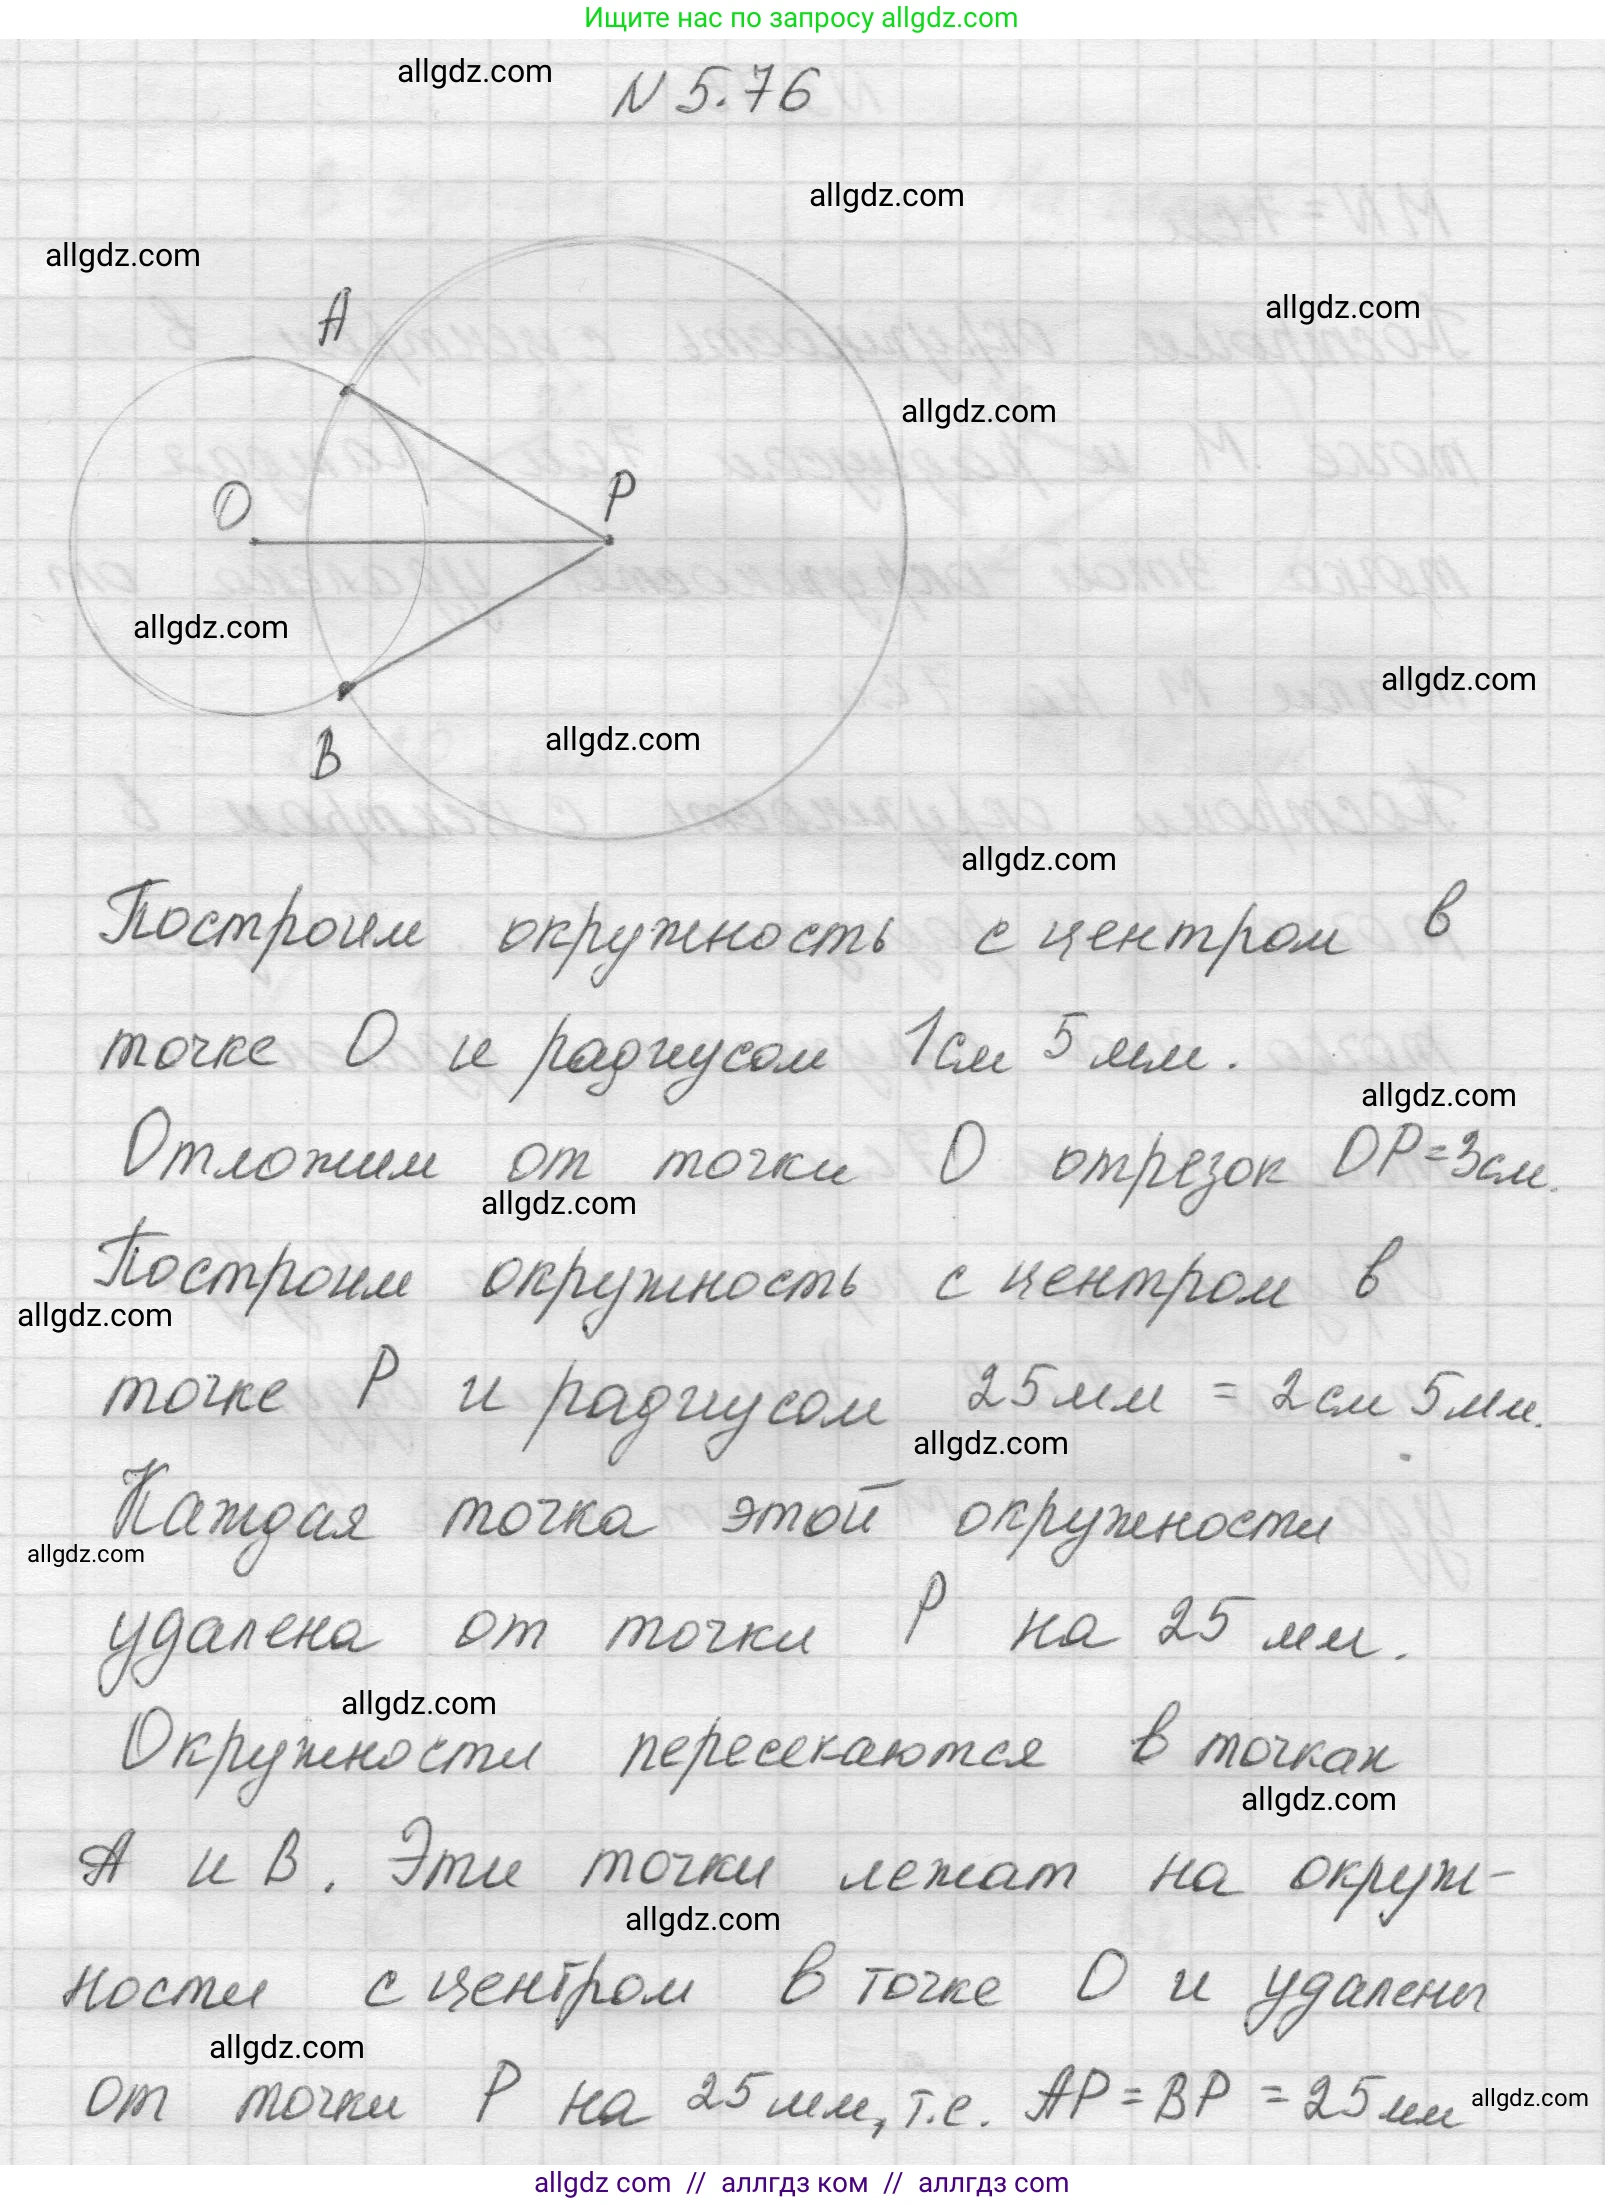 Ищите нас по запросу allgdz.com
allgdz.com
N 5.76
allgdz.com
allgdz.com
A
allgdz.com
allgdz.com
O
P
allgdz.com
allgdz.com
B
allgdz.com
allgdz.com
Построим окружность с центром в
точке O и радиусом 1см 5 мм.
allgdz.com
Отложим от точки O отрезок OP=3см.
allgdz.com
Построим окружность с центром в
allgdz.com
точке P и радиусом 25мм = 2см 5мм.
allgdz.com
Каждая точка этой окружности
allgdz.com
удалена от точки P на 25 мм.
allgdz.com
Окружности пересекаются в точках
allgdz.com
A и B. Эти точки лежат на окруж-
allgdz.com
ности с центром в точке O и удалены
allgdz.com
от точки P на 25мм, т.е. AP=BP=25мм
allgdz.com
allgdz com // аллгдз ком // аллгдз com